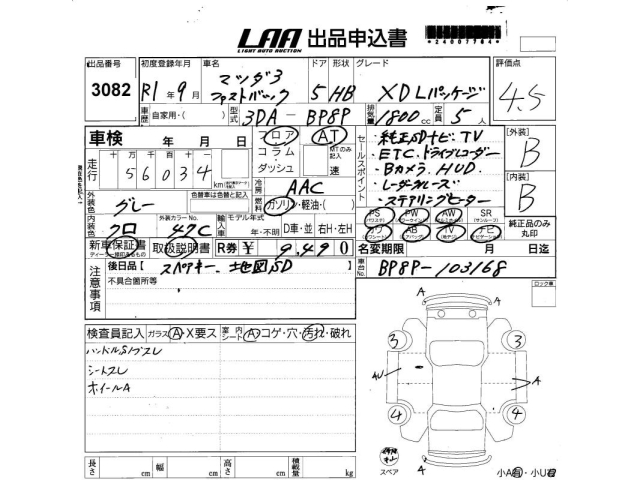 LAA 出品申込書
LIGHT AUTO AUCTION
*24007764*
出品番号 初度登録年月 車名 ドア 形状 グレード 評価点
3082 R1年9月 マツダ3 ファストバック 5 HB XDLパッケージ 4.5
車歴 自家用・( ) 型式 3DA-BP8P 排気量 1800cc 定員 5人
車検 年 月 日 フロア AT
コラム・ダッシュ MTのみ記入 速
走行 十万 千 百 十
56034 km
セールスポイント
・純正SDナビ TV
・ETC. ドライブレコーダー
・Bカメラ. HUD.
・レーダクルーズ
・ステアリングヒーター
[外装] B
[内装] B
冷房 AAC
燃料 ガソリン・軽油・( )
外装色 グレー 色替車は色替と記入
内装色 クロ 外装カラーNo. 47C
輸入車 モデル年式 年・不明 D車・並 右H・左H
PS PW AW SR
(パワステ) (パワーウインド) (サンルーフ)
AB TV ナビ
純正品のみ丸印
新車保証書 取扱説明書 R券 ¥ 9,490
名変期限 月 日迄
車台No. BP8P-103168
注意事項
後日品 [ スペアキー. 地図SD ]
不具合箇所等
ロック車
検査員記入 ガラス A・X要ス 室内シート A・コゲ・穴・汚れ・破れ
ハンドルSリブスレ
シートスレ
ホイールA
A
3 3
AU A
4 4
A
スペア
長さ cm 幅 cm 高さ cm 積載量 kg
小A有・小U有